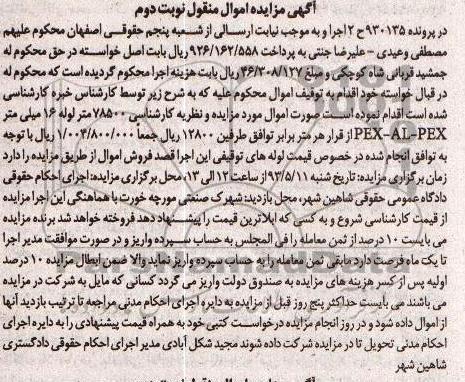 آگهی مزایده اموال منقول نوبت دوم
در پرونده ۹۳۰۱۳۵ ح ۲ اجرا و به موجب نیابت ارسالی از شعبه پنجم حقوقی اصفهان محکوم علیهم
مصطفی وعیدی - علیرضا جنتی به پرداخت ۹۲۶/۱۶۲/۵۵۸ ریال بابت اصل خواسته در حق محکوم له
جمشید قربانی شاه کوچکی و مبلغ ۴۶/۳۰۸/۱۲۷ ریال بابت هزینه اجرا محکوم گردیده است که محکوم له
در قبال خواسته خود اقدام به توقیف اموال محکوم علیه که به شرح زیر توسط کارشناس خبره کارشناسی
شده است اقدام نموده است صورت اموال مورد مزایده و نظریه کارشناسی ۷۸۵۰۰ متر لوله ۱۶ میلی متر
PEX-AL-PEX از قرار هر متر برابر توافق طرفین ۱۲۸۰۰ ریال جمعاً ۱/۰۰۴/۸۰۰/۰۰۰ ریال با توجه
به توافق انجام شده در خصوص قیمت لوله های توقیفی این اجرا قصد فروش اموال از طریق مزایده را دارد
زمان برگزاری مزایده: تاریخ شنبه ۹۳/۵/۱۱ از ساعت ۱۲ الی ۱۳، محل برگزاری مزایده: اجرای احکام حقوقی
دادگاه عمومی حقوقی شاهین شهر، محل بازدید: شهرک صنعتی مورچه خورت با هماهنگی این اجرا مزایده
از قیمت کارشناسی شروع و به کسی که بالاترین قیمت را پیشنهاد دهد فروخته خواهد شد برنده مزایده
می بایست ۱۰ درصد از ثمن معامله را فی المجلس به حساب سپرده واریز و در صورت موافقت مدیر اجرا
تا یک ماه فرصت دارد مابقی ثمن معامله را به حساب سپرده واریز نماید والا ضمن ابطال مزایده ۱۰ درصد
اولیه پس از کسر هزینه های مزایده به صندوق دولت واریز می گردد کسانی که مایل به شرکت در مزایده
می باشند می بایست حداکثر پنج روز قبل از مزایده به دایره اجرای احکام مدنی مراجعه تا ترتیب بازدید آنها
از اموال داده شود و در روز انجام مزایده درخواست کتبی خود به همراه قیمت پیشنهادی را به دایره اجرای
احکام مدنی تحویل تا در مزایده شرکت داده شوند مجید شکل آبادی مدیر اجرای احکام حقوقی دادگستری
شاهین شهر